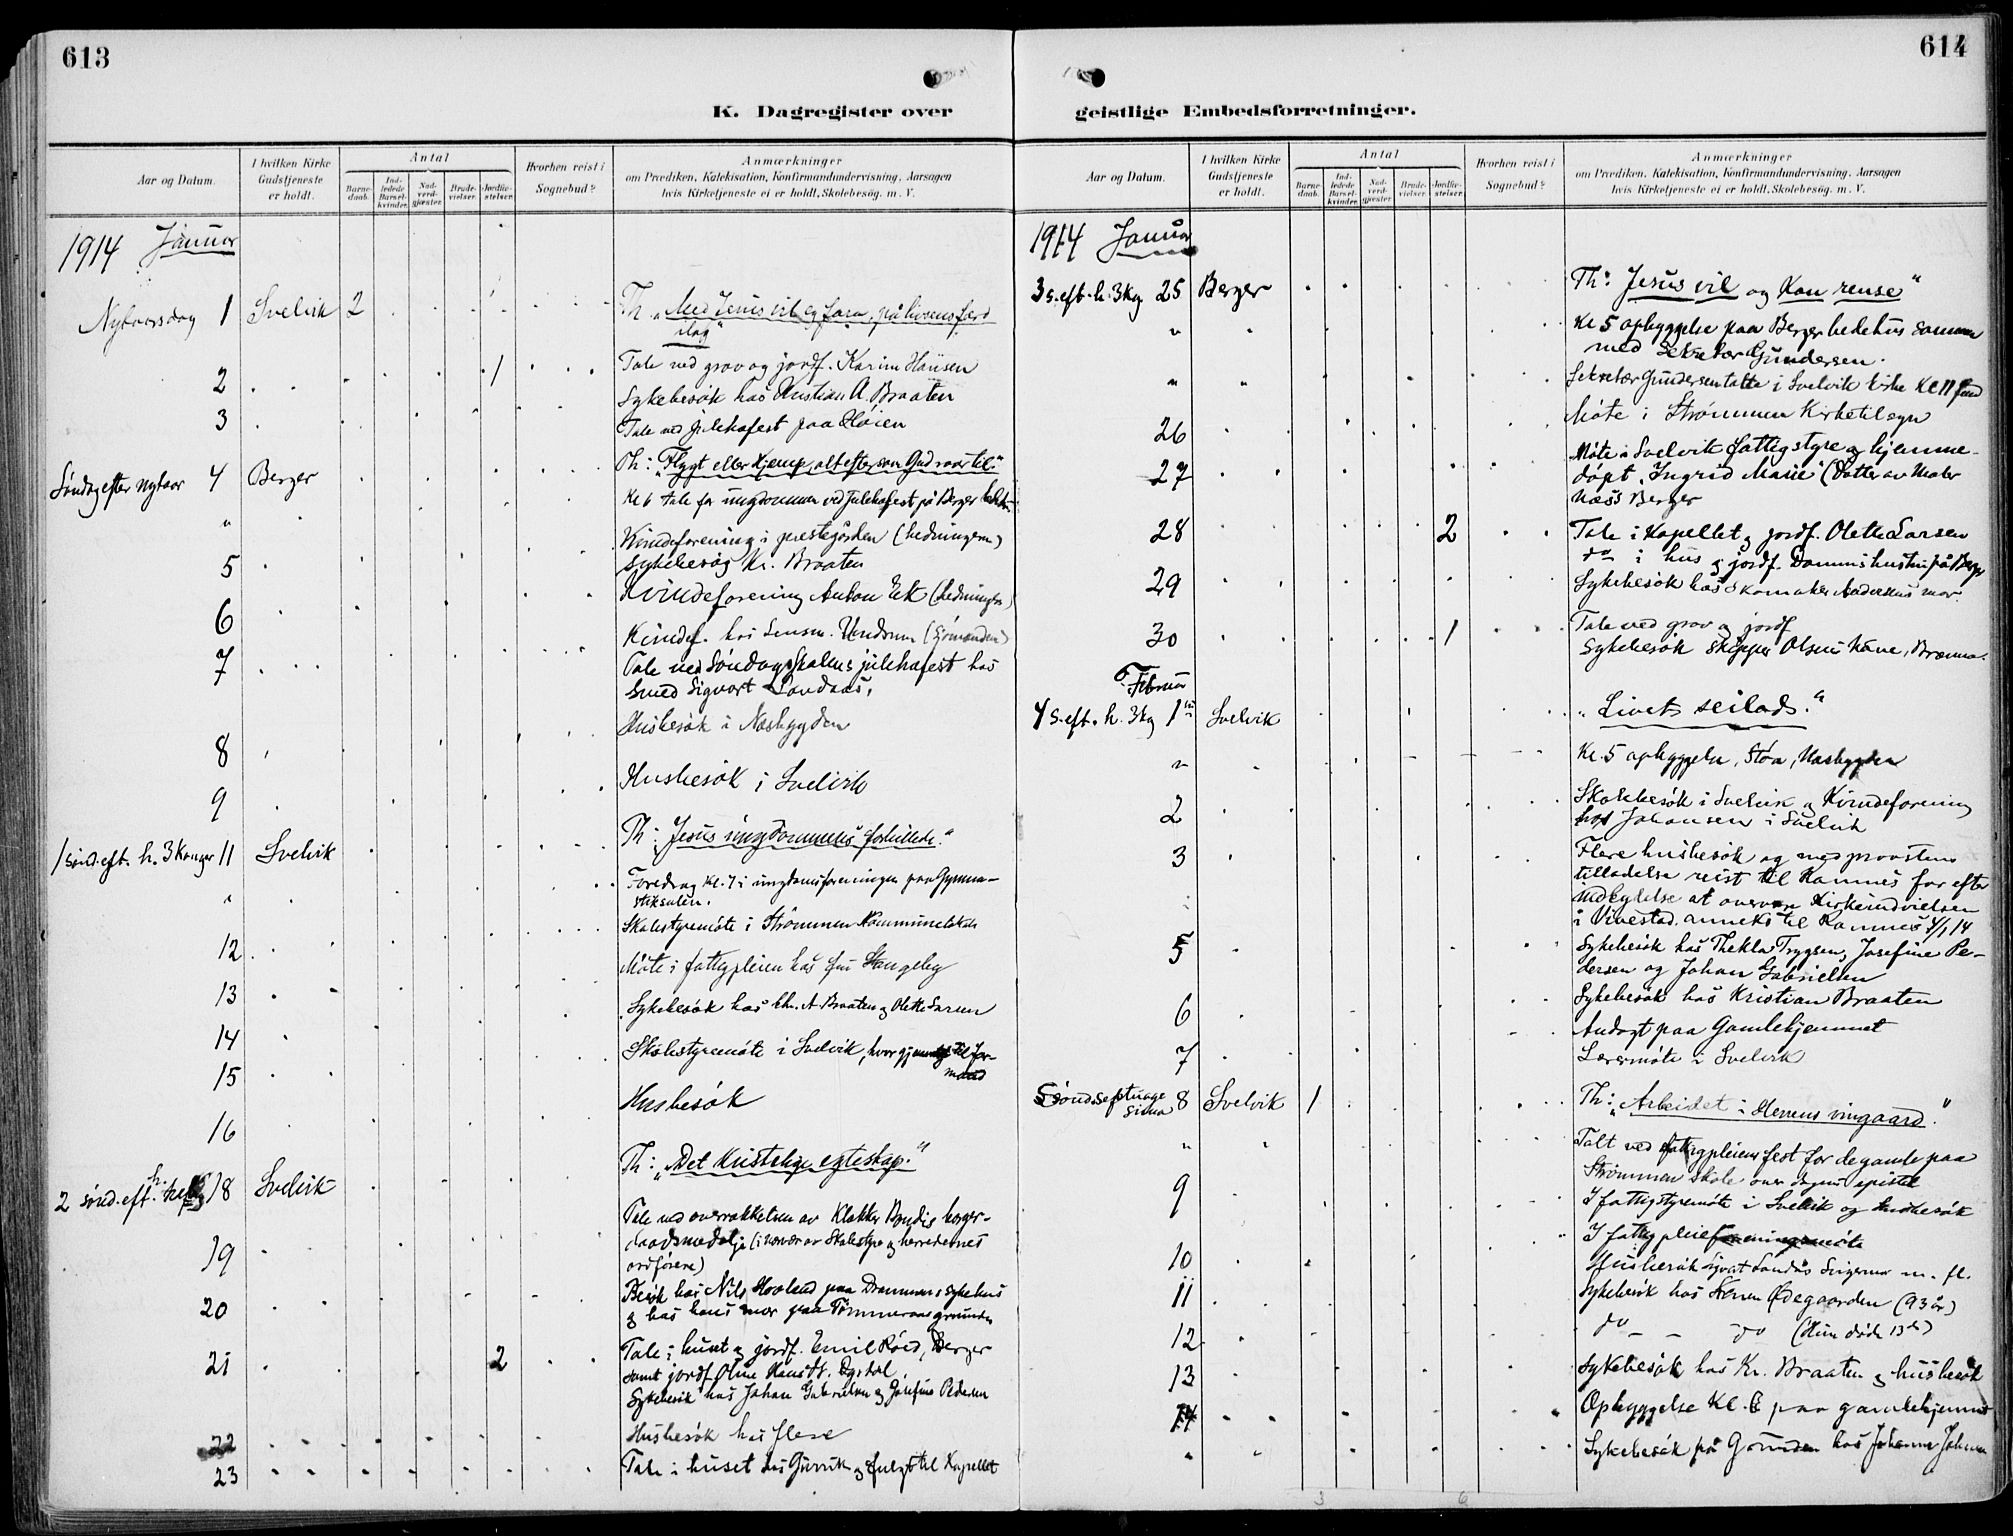 613
K. Dagregister over
Aar og Datum.
I hvilken Kirke Gudstjeneste er holdt.
Antal
Barnedaab.
Indledede Barselkvinder.
Nadverdgjester.
Brudevielser.
Jordfæstelser.
Hvorhen reist i Sognebud?
Anmærkninger
om Prædiken, Katekisation, Konfirmandundervisning, Aarsagen
hvis Kirketjeneste ei er holdt, Skolebesøg. m. V.
1914 Januar
Nytaarsdag 1 Svelvik 2 Th. „Med Jesus vil eg fara, på livsens ferd
idag"
2 1 Tale ved grav og jordf. Karine Hansen
Sykebesøk hos Kristian A. Braaten
3 Tale ved julehøfest paa Høien
Søndag efter nytaar 4 Berger Th: „Flygt eller Kjemp, alt eftersom Gud raar til."
" Kl 6 tale for ungdommen ved julehøfest på Berger
Kvindeforening i prestegården (hedningern)
5 Sykebesøg Kr. Braaten
6 Kvindeforening Anton Ek (hedningern)
Kvindef. hos Lensm. (Sjømanden)
7 Tale ved Søndagsskolens julehøfest hos
Smed Sigvart Landaas,
8 Husbesøk i Nesbygden
9 Husbesøk i Svelvik
1 sønd. eft. h. 3 Konger 11 Svelvik Th: „Jesus ungdommens forbillede."
" Foredrag kl. 7 i ungdomsforeningen paa Gymna-
stiksalen.
12 Skolestyremøte i Strømmen Kommunelokale
13 Møte i fattigpleien hos fru Stangeby
14 Sykebesøk hos Chr. A Braaten og Olette Larsen
15 Skolestyremøte i Svelvik, hvor gjenvalgt til for-
mand
16 Husbesøk
2 sønd. eft. h. 18 Svelvik Th: „Det Kristelige egteskap."
19 Tale ved overrækkelsen av Klokker Bondis borger-
daadsmedalje (i nærvær av Skolestyre og herredernes
ordførere)
20 Besøk hos Nils Hovland paa Drammens sykehus
og hos hans mor paa Tømmeraasgrunden
21 2 Tale i huset og jordf. Emil Röed, Berger
samt jordf Oline Hansdt.
Sykebesøk hos Johan Gabrielsen og Josefine Pedersen
22 Husbesøk hos flere
23 Tale i huset hos og fulgt til Kapellet
614
geistlige Embedsforretninger.
Aar og Datum.
I hvilken Kirke Gudstjeneste er holdt.
Antal
Barnedaab.
Indledede Barselkvinder.
Nadverdgjester.
Brudevielser.
Jordfæstelser.
Hvorhen reist i Sognebud?
Anmærkninger
om Prædiken, Katekisation, Konfirmandundervisning, Aarsagen
hvis Kirketjeneste ei er holdt, Skolebesøg. m. V.
1914 Januar
3 s. eft. h. 3kg 25 Berger Th: „Jesus vil og Kan rense"
" Kl 5 opbyggelse paa Berger bedehus sammen
med Sekretær Gundersen.
" Sekretær Gundersen talte i Svelvik kirke Kl 11
26 Møte i Strømmen Kirketilsyn
27 Møte i Svelvik fattigstyre og hjemme-
døpt „Ingrid Marie" (Datter av Maler
Næss Berger
28 2 Tale i Kapellet og jordf. Olette Larsen
do i hus og jordf. Dammis hustru på Berger
29 Sykebesøk hos Skomaker Andersens mor.
30 1 Tale ved grav og jordf
Sykebesøk skipper Olsens
Februar
4 s. eft. h. 3kg 1ste Svelvik „Livets seilads."
" Kl. 5 opbyggelse, Støa, Nesbygden
2 Skolebesøk i Svelvik og Kvindeforening
hos Johansen i Svelvik
3 Flere husbesøk og med provstens
tilladelse reist til Ramnes for efter
indbydelse at overvære Kirkeindvielsen
i Vivestad anneks til Ramnes 4/2 14
5 Sykebesøk hos Thekla Trygsen, Josefine Pe-
dersen og Johan Gabrielsen
6 Sykebesøk hos Kristian Braaten
Andagt paa Gamlehjemmet
7 Lærermøte i Svelvik
Sønds. septuage
sima 8 Svelvik 1 Th: „Arbeidet i Herrens vingaard."
" Talt ved fattigpleiens fest for de gamle paa
Strømmen skole over dagens epistel
9 I fattigstyremøte i Svelvik og husbesøk
I fattigpleieforeningsmøte
10 Husbesøk Sigvart Landås Svigermor m. fl.
11 Sykebesøk hos Ødegaarden (93 år)
12 do – – do (Hun døde 13de)
13 Sykebesøk hos Kr. Braaten og husbesøk
14 Opbyggelse Kl. 6 paa gamlehjemmet
" Sykebesøk på Grunden hos Johanne
3 6